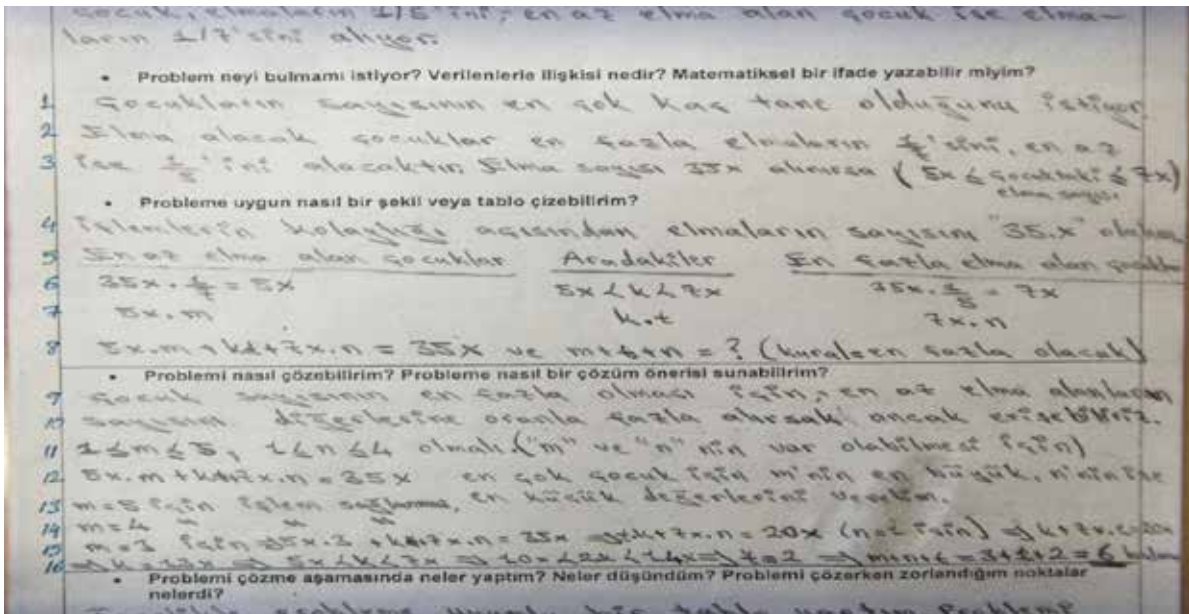 çocuk, elmaların 1/5'ini, en az elma alan çocuk ise elma-
ların 1/7'sini alıyor.
• Problem neyi bulmamı istiyor? Verilenlerle ilişkisi nedir? Matematiksel bir ifade yazabilir miyim?
1 Çocukların sayısının en çok kaç tane olduğunu istiyor.
2 Elma alacak çocuklar en fazla elmaların 'sini, en az
3 ise 1/5'ini alacaktır. Elma sayısı 35x alınırsa (5x ≤ çocuktaki ≤ 7x)
elma sayısı
• Probleme uygun nasıl bir şekil veya tablo çizebilirim?
4 İşlemlerin kolaylığı açısından elmaların sayısını "35.x"
5 En az elma alan çocuklar Aradakiler En fazla elma alan
6 35x.1/7 = 5x 5x < k < 7x 35x.1/5 = 7x
7 5x.m k.t 7x.n
8 5x.m + k.t + 7x.n = 35x ve m+t+n = ? (kural=en fazla olacak)
• Problemi nasıl çözebilirim? Probleme nasıl bir çözüm önerisi sunabilirim?
9 Çocuk sayısının en fazla olması için, en az elma alanların
10 sayısını diğerlerine oranla fazla alırsak ancak erişebiliriz.
11 1≤m≤5, 1≤n≤4 olmalı ("m" ve "n" nin var olabilmesi için)
12 5x.m + k.t + 7x.n = 35x en çok çocuk için m'nin en büyük, n'nin ise
13 m=5 için işlem en küçük değerlerini verelim.
14 m=4 " " "
15 m=3 için 5x.3 + k.t + 7x.n = 35x k.t + 7x.n = 20x (n=1 için)
16 5x<k<7x 10x<2k<14x t=2 m+n+t = 3+1+2 = 6
• Problemi çözme aşamasında neler yaptım? Neler düşündüm? Problemi çözerken zorlandığım noktalar
nelerdi?